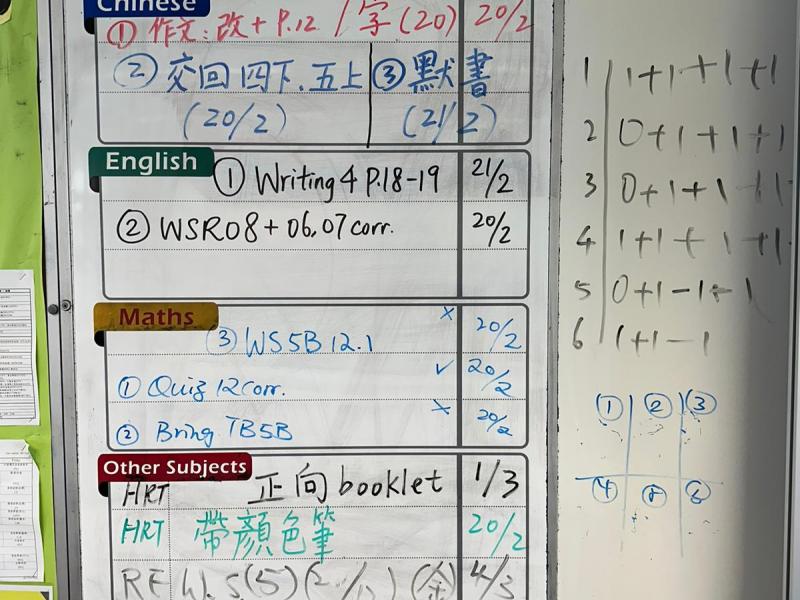 Chinese
① 作文:改+P.12 / 字(20) 20/2
② 交回四下.五上 ③ 默書
(20/2) (21/2)
English
① Writing 4 P.18-19 21/2
② WSR08 + 06,07 corr. 20/2
Maths
③ WS 5B 12.1 × 20/2
① Quiz 12 corr. ✓ 20/2
② Bring TB5B × 20/2
Other Subjects
HRT 正向 booklet 1/3
HRT 帶顏色筆 20/2
RE W.S(5) (金) 4/3
1 1+1+1+1
2 0+1+1+1
3 0+1+1+1
4 1+1+1+1
5 0+1-1+1
6 1+1-1
① ② ③
④ ⑤ ⑥